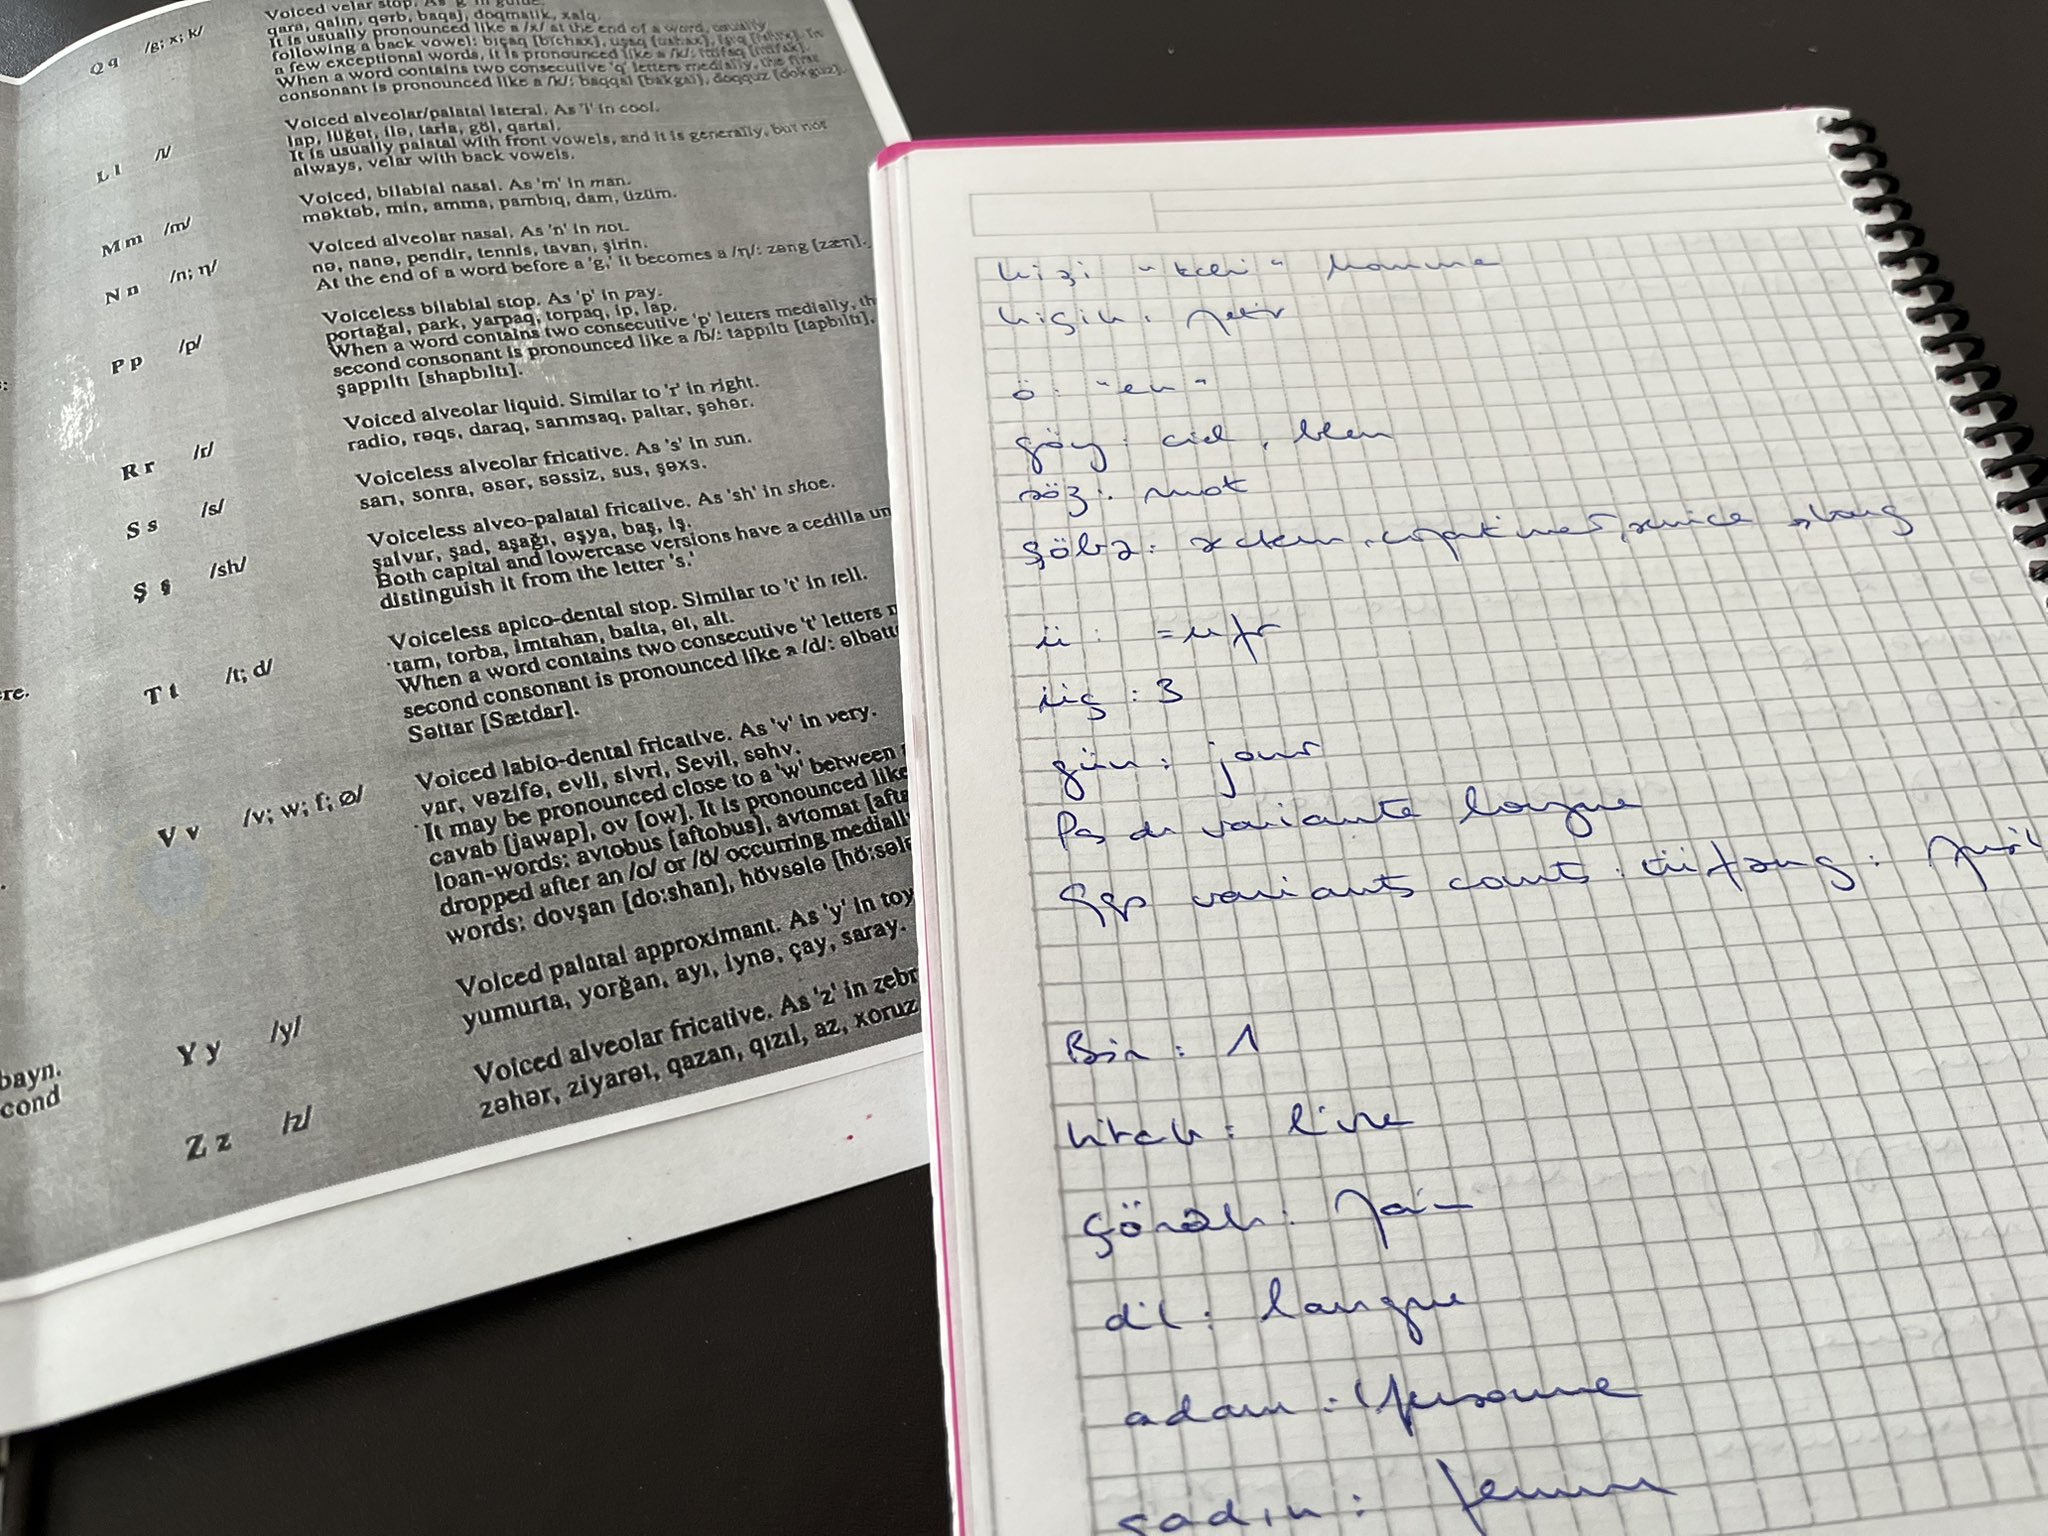 Q q /g; x; k/
Voiced velar stop. As 'g' in guide.
qara, qalın, qərb, baqaj, doqmatik, xalq.
It is usually pronounced like a /x/ at the end of a word, usually
following a back vowel: bıçaq [bichax], uşaq [ushax], In
a few exceptional words, it is pronounced like a /k/: ittifaq [ittifak].
When a word contains two consecutive 'q' letters medially, the first
consonant is pronounced like a /k/: baqqal [bakgal], doqquz [dokguz].
L l /l/
Voiced alveolar/palatal lateral. As 'l' in cool.
lap, lüğət, ilə, tarla, göl, qartal.
It is usually palatal with front vowels, and it is generally, but not
always, velar with back vowels.
M m /m/
Voiced, bilabial nasal. As 'm' in man.
məktəb, min, amma, pambıq, dam, üzüm.
N n /n; η/
Voiced alveolar nasal. As 'n' in not.
nə, nanə, pendir, tennis, tavan, şirin.
At the end of a word before a 'g,' it becomes a /η/: zəng [zæη].
P p /p/
Voiceless bilabial stop. As 'p' in pay.
portağal, park, yarpaq, torpaq, ip, lap.
When a word contains two consecutive 'p' letters medially, th
second consonant is pronounced like a /b/: tappıltı [tapbıltı],
şappıltı [shapbıltı].
R r /r/
Voiced alveolar liquid. Similar to 'r' in right.
radio, rəqs, daraq, sarımsaq, paltar, şəhər.
S s /s/
Voiceless alveolar fricative. As 's' in sun.
sarı, sonra, əsər, səssiz, sus, şəxs.
Ş ş /sh/
Voiceless alveo-palatal fricative. As 'sh' in shoe.
şalvar, şad, aşağı, əşya, baş, iş.
Both capital and lowercase versions have a cedilla un
distinguish it from the letter 's.'
T t /t; d/
Voiceless apico-dental stop. Similar to 't' in tell.
tam, torba, imtahan, balta, ət, alt.
When a word contains two consecutive 't' letters m
second consonant is pronounced like a /d/: əlbəttə
Səttar [Sætdar].
V v /v; w; f; ∅/
Voiced labio-dental fricative. As 'v' in very.
var, vəzifə, evli, sivri, Sevil, səhv.
It may be pronounced close to a 'w' between
cavab [jawap], ov [ow]. It is pronounced like
loan-words: avtobus [aftobus], avtomat [afta
dropped after an /o/ or /ö/ occurring mediall
words: dovşan [do:shan], hövsələ [hö:sələ
Y y /y/
Voiced palatal approximant. As 'y' in toy
yumurta, yorğan, ayı, iynə, çay, saray.
Z z /z/
Voiced alveolar fricative. As 'z' in zebr
zəhər, ziyarət, qazan, qızıl, az, xoruz
re.
bayn.
cond
kişi homme
kiçik: petit
ö: "eu"
göy: ciel, bleu
söz: mot
şöbə: service
ü: = u fr
üç: 3
gün: jour
Pas de variante longue
Qqs variants courts: tüfəng: fusil
Bir: 1
kitab: livre
çörək: pain
dil: langue
adam: personne
qadın: femme